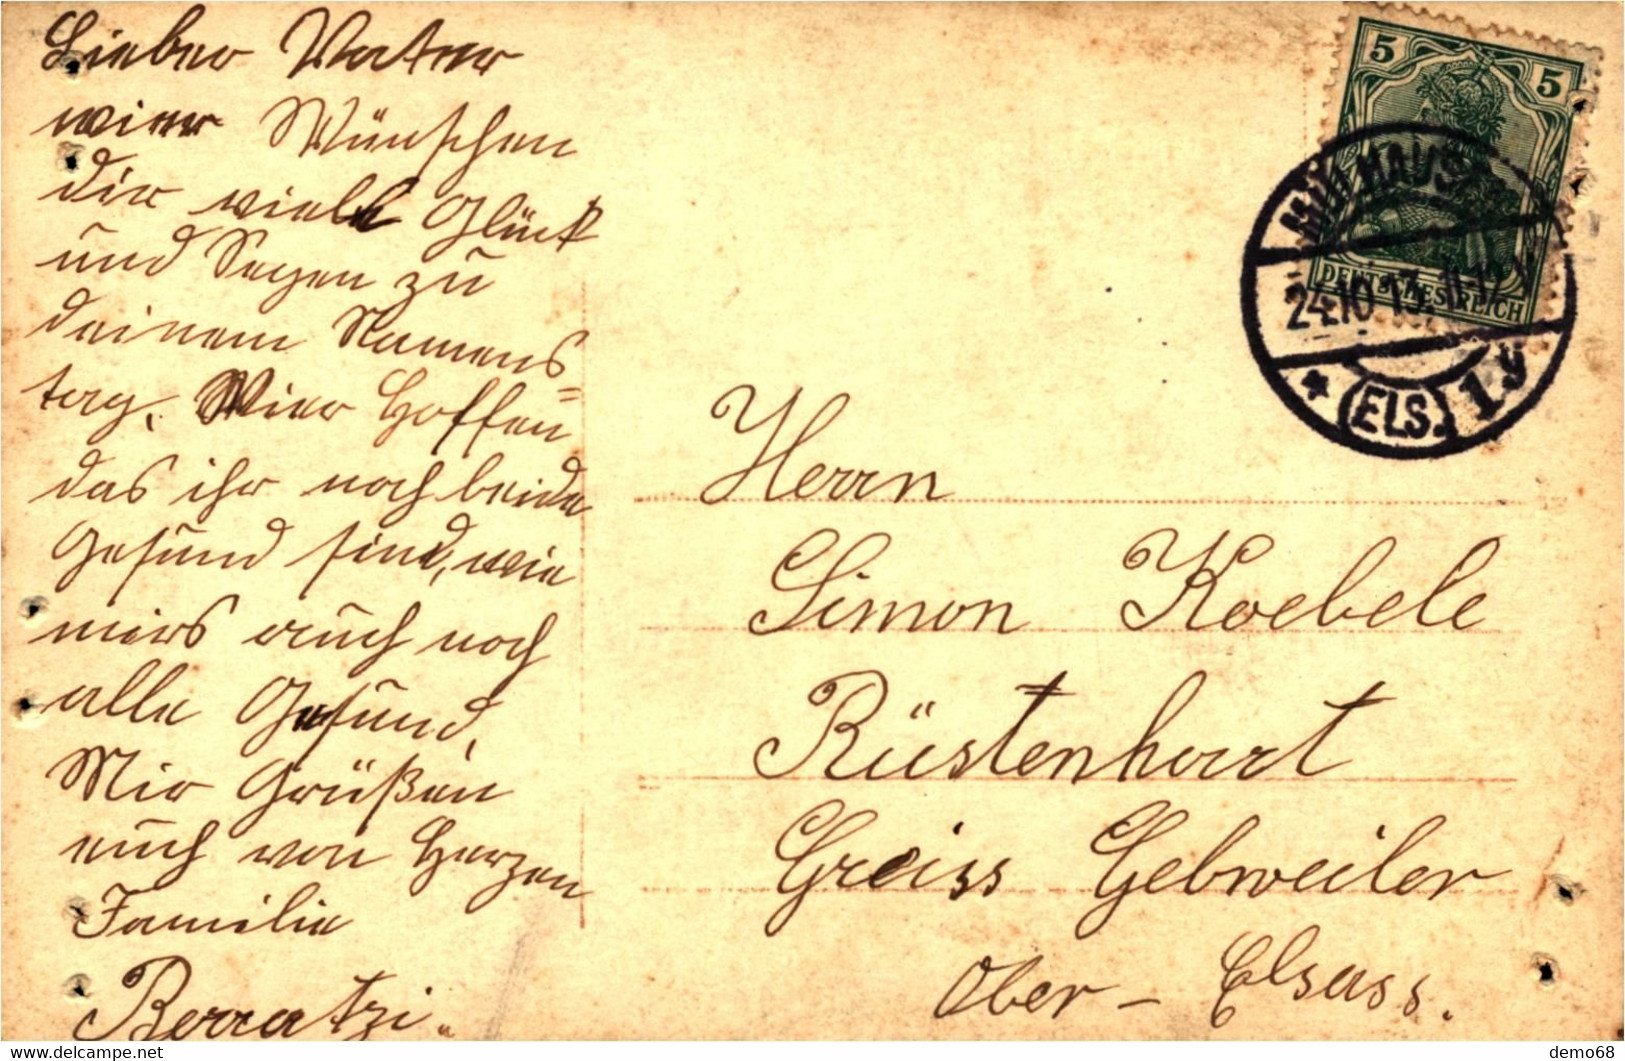 Lieber Vater
wier Wünschen
dir viele Glück
und Segen zu
deinem Namens=
tag. Wier Hoffen
das ihr noch beide
Gesund sind, wie
mirs auch noch
alle Gesund,
Mir Grüßen
euch von Herzen
Familie
Berratzi.
5 5
DEUTSCHES REICH
MÜLHAUS
24.10.13. 11-12 V
* (ELS.) 1 y
Herrn
Simon Koebele
Rüstenhart
Greiss Gebweiler
Ober - Elsass.
demo68